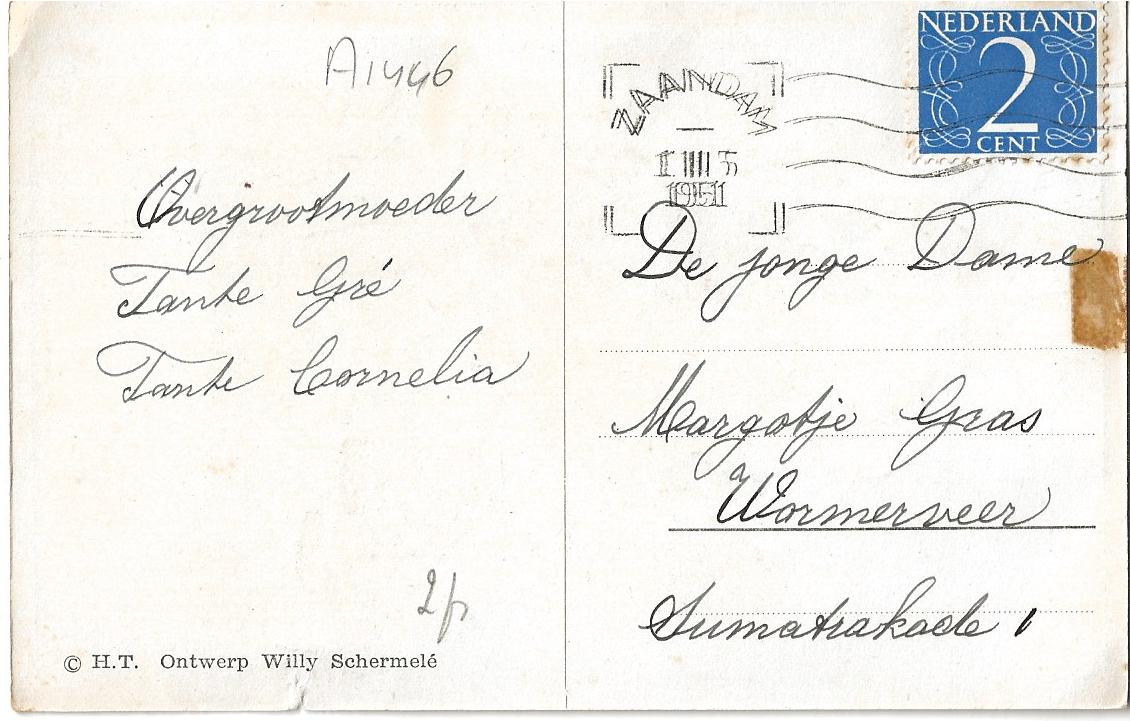 A1446
Overgrootmoeder
Tante Gré
Tante Cornelia
2fr
© H.T. Ontwerp Willy Schermelé
NEDERLAND
2
CENT
ZAANDAM
1951
De jonge Dame
Margotje Gras
Wormerveer
Sumatrakade 1